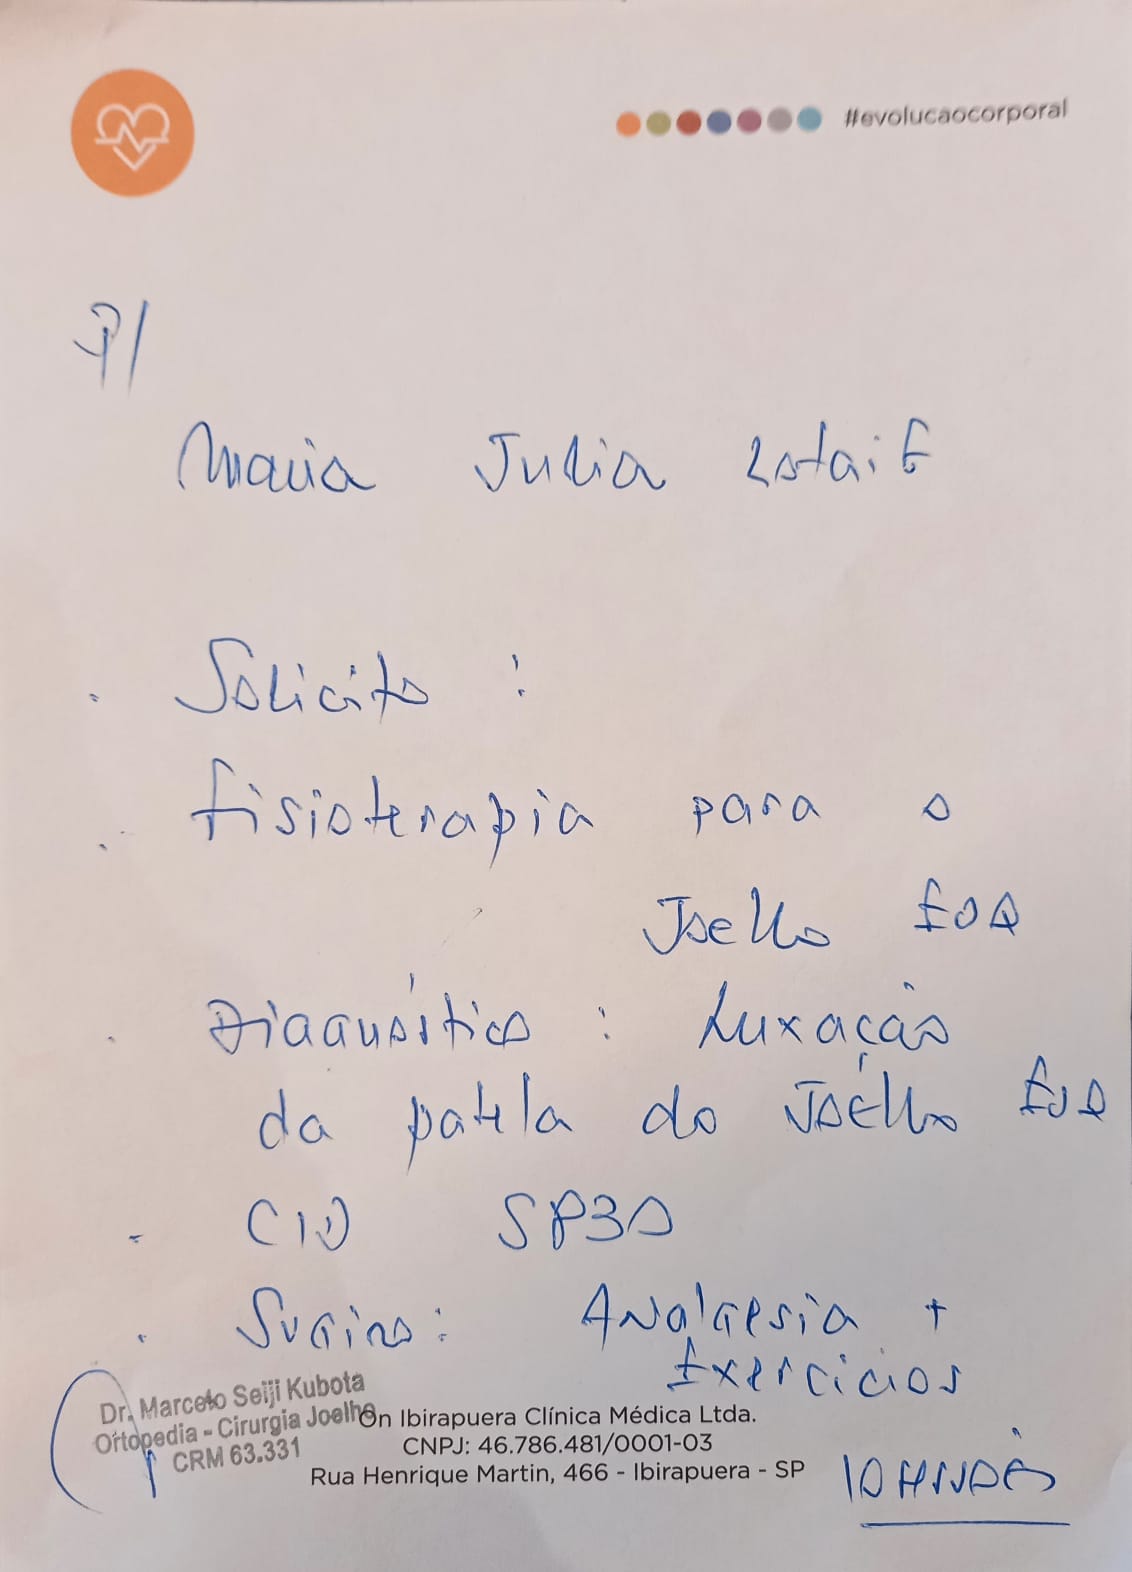 #evolucaocorporal
P/
Maria Julia Estaif
Solicito :
fisioterapia para o
Joelho EOQ
Diagnóstico : Luxação
da patela do Joelho
CID S830
Sugiro: Analgesia +
Exercicios
Dr. Marcelo Seiji Kubota
Ortopedia - Cirurgia Joelho
CRM 63.331
On Ibirapuera Clínica Médica Ltda.
CNPJ: 46.786.481/0001-03
Rua Henrique Martin, 466 - Ibirapuera - SP
10